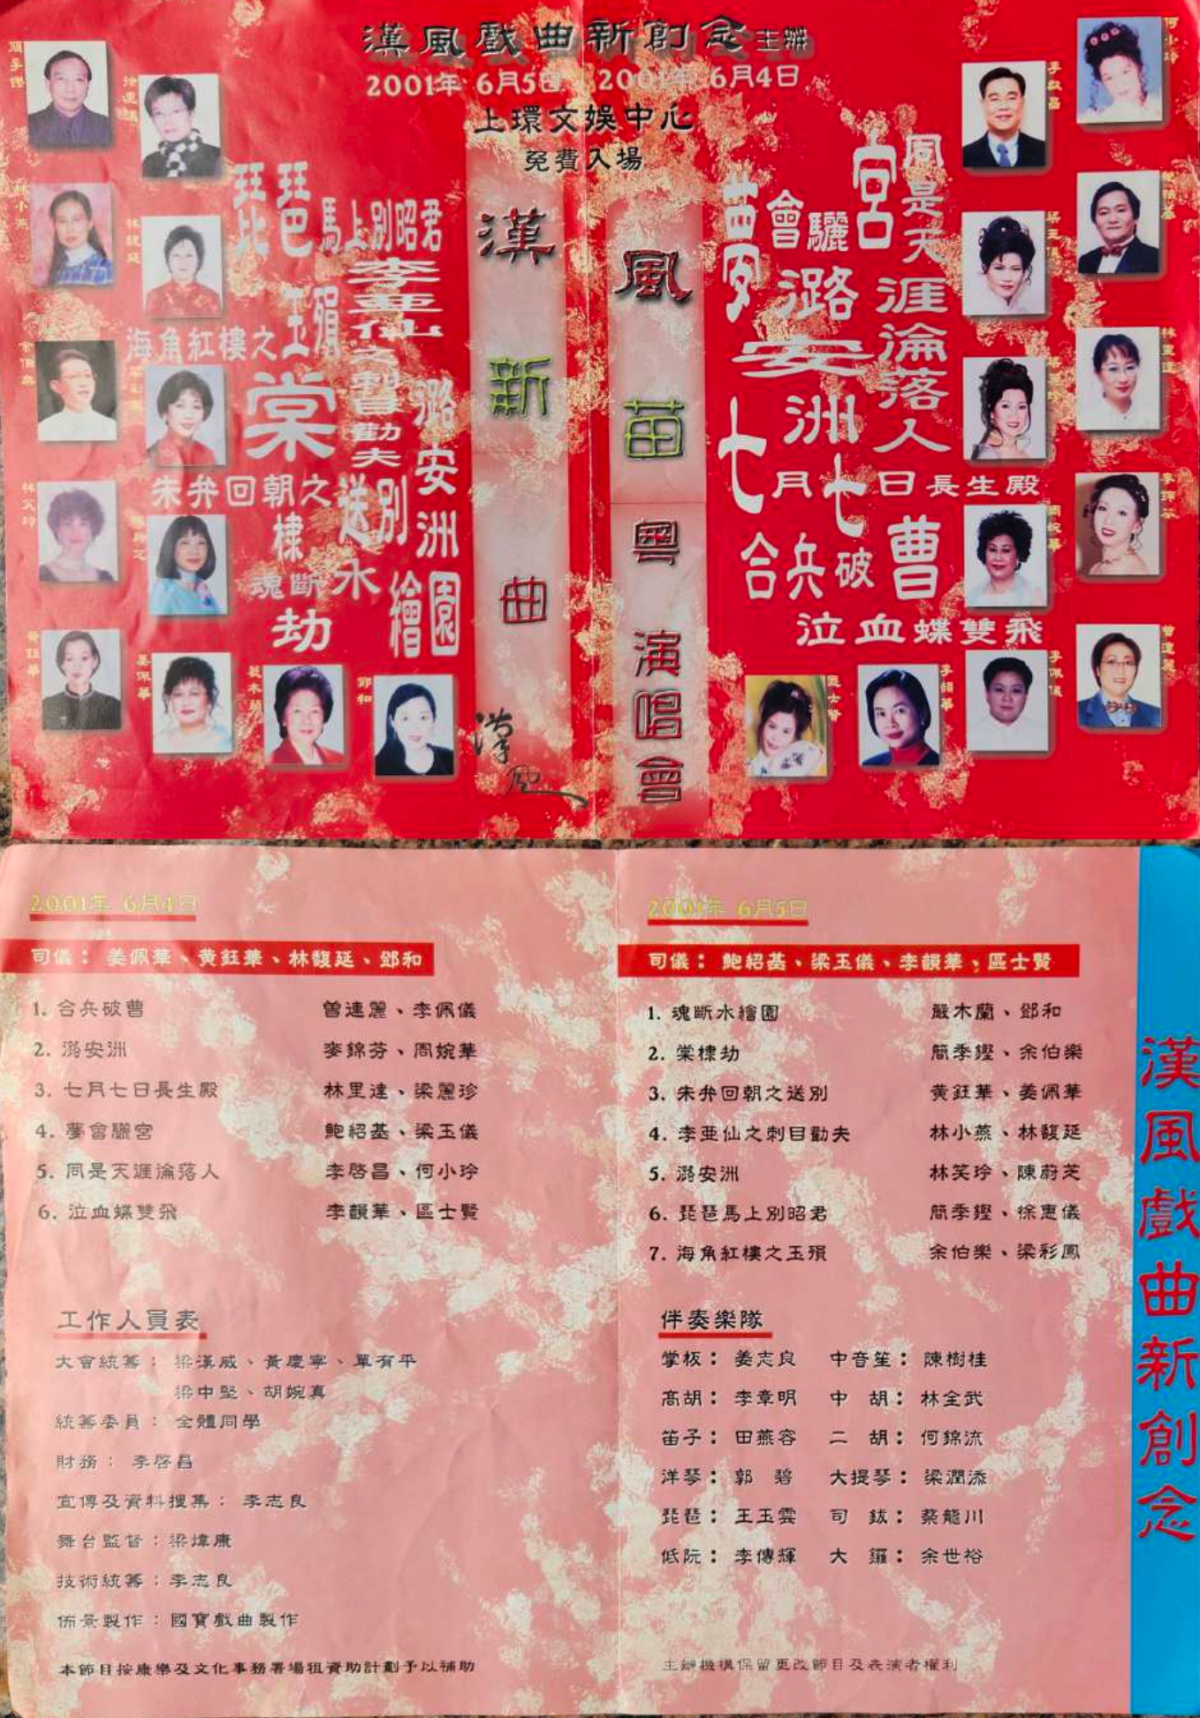 漢風戲曲新創念主辦
2001年 6月5日 2001年 6月4日
上環文娛中心
免費入場
漢新曲
風苗粵演唱會
琵琶馬上別昭君
李亞仙之刺目勸夫
海角紅樓之玉殞
潞安洲
棠棣劫
朱弁回朝之送別
魂斷水繪園
夢會驪宮
同是天涯淪落人
潞安洲
七月七日長生殿
合兵破曹
泣血蝶雙飛
漢風
簡季鏗
林馥延
林笑玲
黃鈺華
姜佩華
嚴木蘭
鄧和
李啟昌
何小玲
梁玉儀
林里達
周婉華
曾達麗
區士賢
李韻華
李佩儀
2001年 6月4日
司儀：姜佩華、黃鈺華、林馥延、鄧和
1. 合兵破曹 曾達麗、李佩儀
2. 潞安洲 麥錦芬、周婉華
3. 七月七日長生殿 林里達、梁麗珍
4. 夢會驪宮 鮑紹基、梁玉儀
5. 同是天涯淪落人 李啓昌、何小玲
6. 泣血蝶雙飛 李韻華、區士賢
工作人員表
大會統籌：梁漢威、黃慶寧、單有平
梁中堅、胡婉真
統籌委員：全體同學
財務：李啓昌
宣傳及資料搜集：李志良
舞台監督：梁煒康
技術統籌：李志良
佈景製作：國寶戲曲製作
本節目按康樂及文化事務署場租資助計劃予以補助
2001年 6月5日
司儀：鮑紹基、梁玉儀、李韻華、區士賢
1. 魂斷水繪園 嚴木蘭、鄧和
2. 棠棣劫 簡季鏗、余伯樂
3. 朱弁回朝之送別 黃鈺華、姜佩華
4. 李亞仙之刺目勸夫 林小燕、林馥延
5. 潞安洲 林笑玲、陳蔚芝
6. 琵琶馬上別昭君 簡季鏗、徐惠儀
7. 海角紅樓之玉殞 余伯樂、梁彩鳳
伴奏樂隊
掌板：姜志良 中音笙：陳樹桂
高胡：李章明 中 胡：林全武
笛子：田燕容 二 胡：何錦流
洋琴：郭 碧 大提琴：梁潤添
琵琶：王玉雲 司 鈸：蔡龍川
低阮：李傳輝 大 鑼：余世裕
主辦機構保留更改節目及表演者權利
漢風戲曲新創念